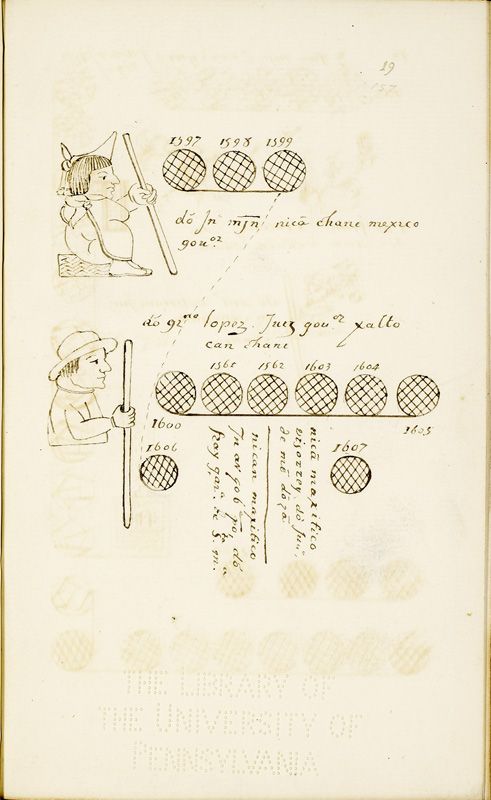 29
157
1597 1598 1599
dō Jn mīn nicā chane mexico
gouor
dō gmo lopez. Juez gouor xalto
can chane
1561 1562 1603 1604
1600 1605
1606 1607
nicā maxitico
visorrey dō
de mē doçā
nican maxitico
dō
fray garª de
THE LIBRARY OF
THE UNIVERSITY OF
PENNSYLVANIA